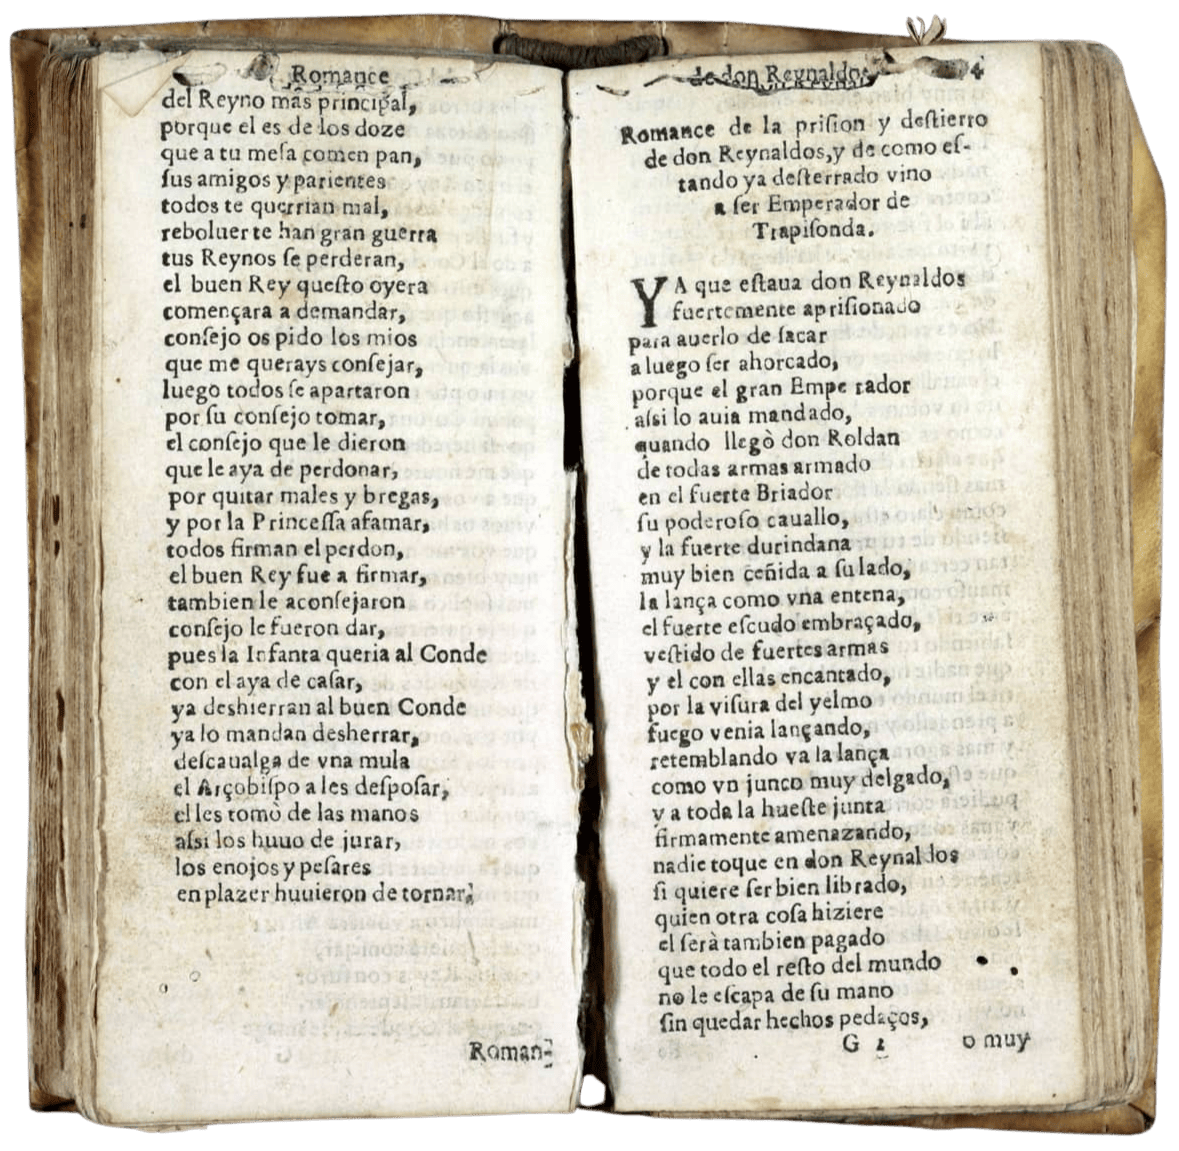 Romance
del Reyno mas principal,
porque el es de los doze
que a tu mesa comen pan,
sus amigos y parientes
todos te querrian mal,
reboluer te han gran guerra
tus Reynos se perderan,
el buen Rey questo oyera
començara a demandar,
consejo os pido los mios
que me querays consejar,
luego todos se apartaron
por su consejo tomar,
el consejo que le dieron
que le aya de perdonar,
por quitar males y bregas,
y por la Princessa afamar,
todos firman el perdon,
el buen Rey fue a firmar,
tambien le aconsejaron
consejo le fueron dar,
pues la Infanta queria al Conde
con el aya de casar,
ya deshierran al buen Conde
ya lo mandan desherrar,
descaualga de vna mula
el Arçobispo a les desposar,
el les tomò de las manos
assi los huuo de jurar,
los enojos y pesares
en plazer huuieron de tornar.
Roman-
de don Reynaldos 4
Romance de la prision y destierro
de don Reynaldos, y de como es-
tando ya desterrado vino
a ser Emperador de
Trapisonda.
YA que estaua don Reynaldos
fuertemente aprisionado
para auerlo de sacar
a luego ser ahorcado,
porque el gran Emperador
assi lo auia mandado,
quando llegò don Roldan
de todas armas armado
en el fuerte Briador
su poderoso cauallo,
y la fuerte durindana
muy bien ceñida a su lado,
la lança como vna entena,
el fuerte escudo embraçado,
vestido de fuertes armas
y el con ellas encantado,
por la visura del yelmo
fuego venia lançando,
retemblando va la lança
como vn junco muy delgado,
y a toda la hueste junta
firmamente amenazando,
nadie toque en don Reynaldos
si quiere ser bien librado,
quien otra cosa hiziere
el serà tambien pagado
que todo el resto del mundo
no le escapa de su mano
sin quedar hechos pedaços,
G 2 o muy